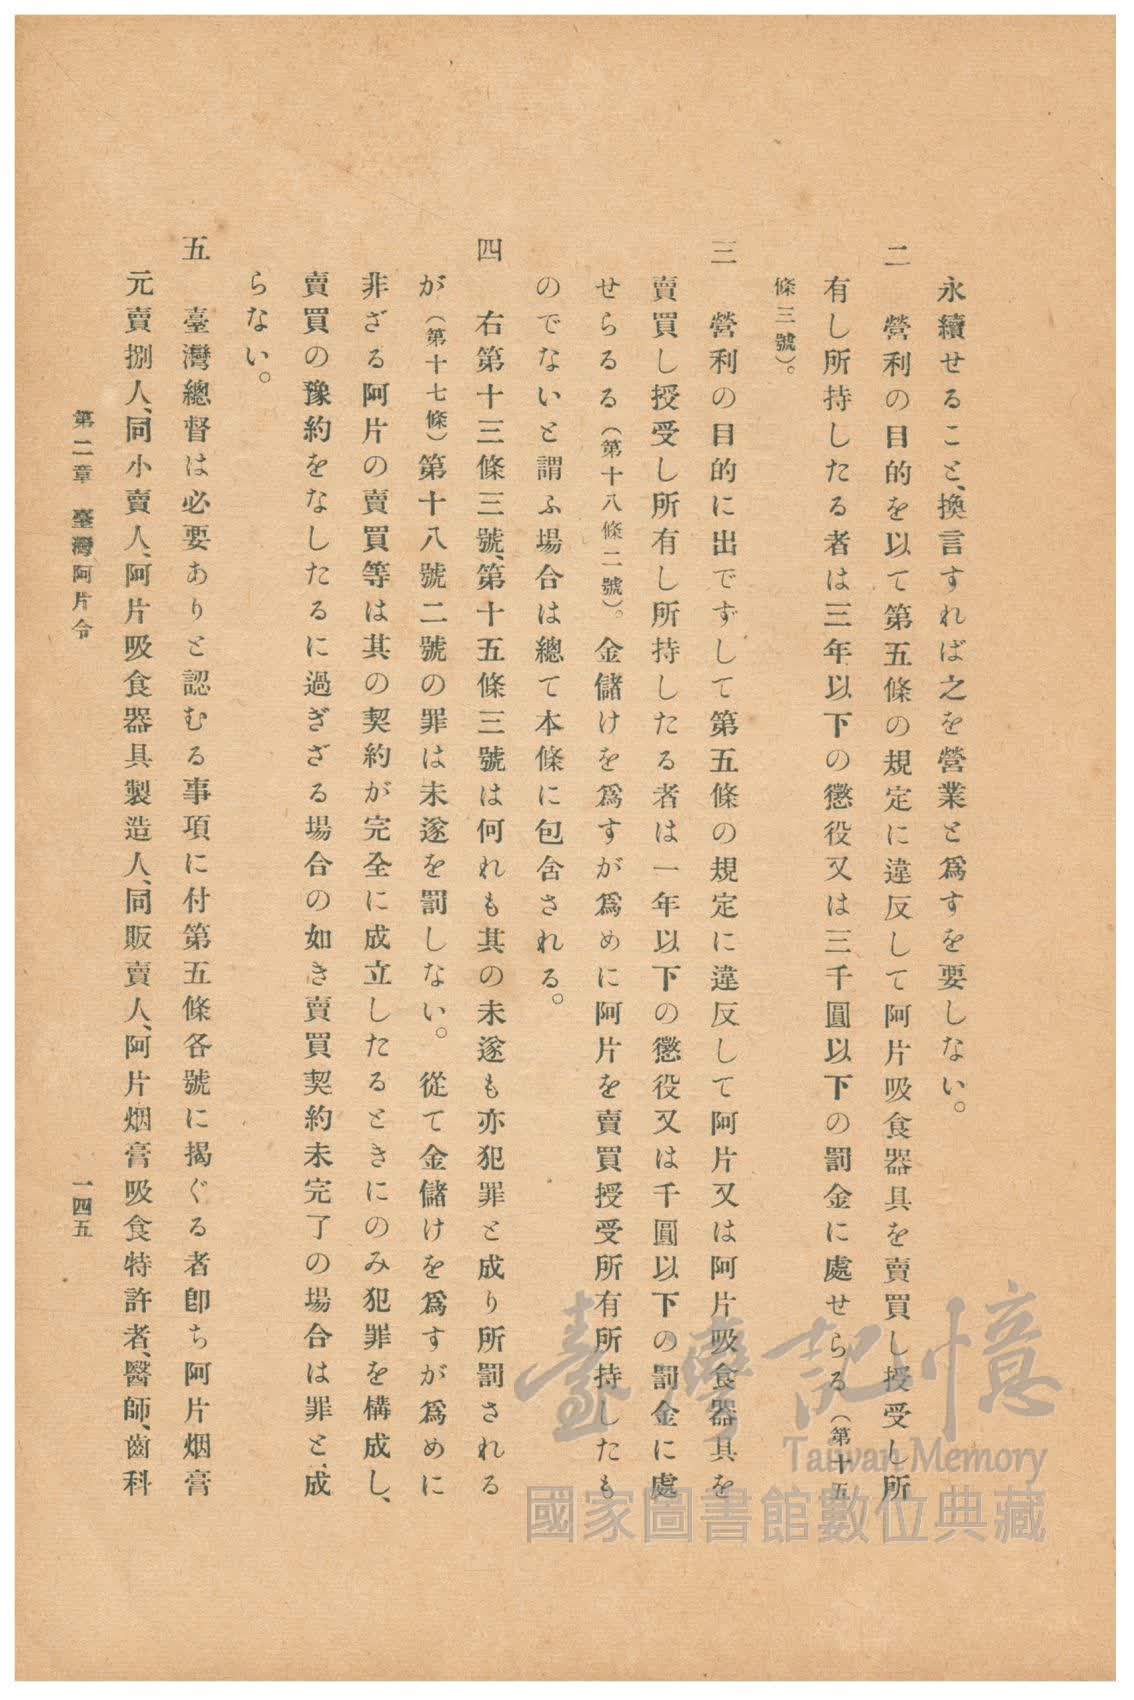 永續せること、換言すれば之を營業と爲すを要しない。
二　營利の目的を以て第五條の規定に違反して阿片吸食器具を賣買し授受し所
有し所持したる者は三年以下の懲役又は三千圓以下の罰金に處せらる（第十五
條三號）。
三　營利の目的に出でずして第五條の規定に違反して阿片又は阿片吸食器具を
賣買し授受し所有し所持したる者は一年以下の懲役又は千圓以下の罰金に處
せらるる（第十八條二號）。金儲けを爲すが爲めに阿片を賣買授受所有所持したも
のでないと謂ふ場合は總て本條に包含される。
四　右第十三條三號、第十五條三號は何れも其の未遂も亦犯罪と成り所罰される
が（第十七條）第十八號二號の罪は未遂を罰しない。從て金儲けを爲すが爲めに
非ざる阿片の賣買等は其の契約が完全に成立したるときにのみ犯罪を構成し、
賣買の豫約をなしたるに過ぎざる場合の如き賣買契約未完了の場合は罪と成
らない。
五　臺灣總督は必要ありと認むる事項に付第五條各號に揭ぐる者卽ち阿片烟膏
元賣捌人、同小賣人、阿片吸食器具製造人、同販賣人、阿片烟膏吸食特許者、醫師、齒科
第二章　臺灣阿片令　一四五
臺灣記憶
Taiwan Memory
國家圖書館數位典藏